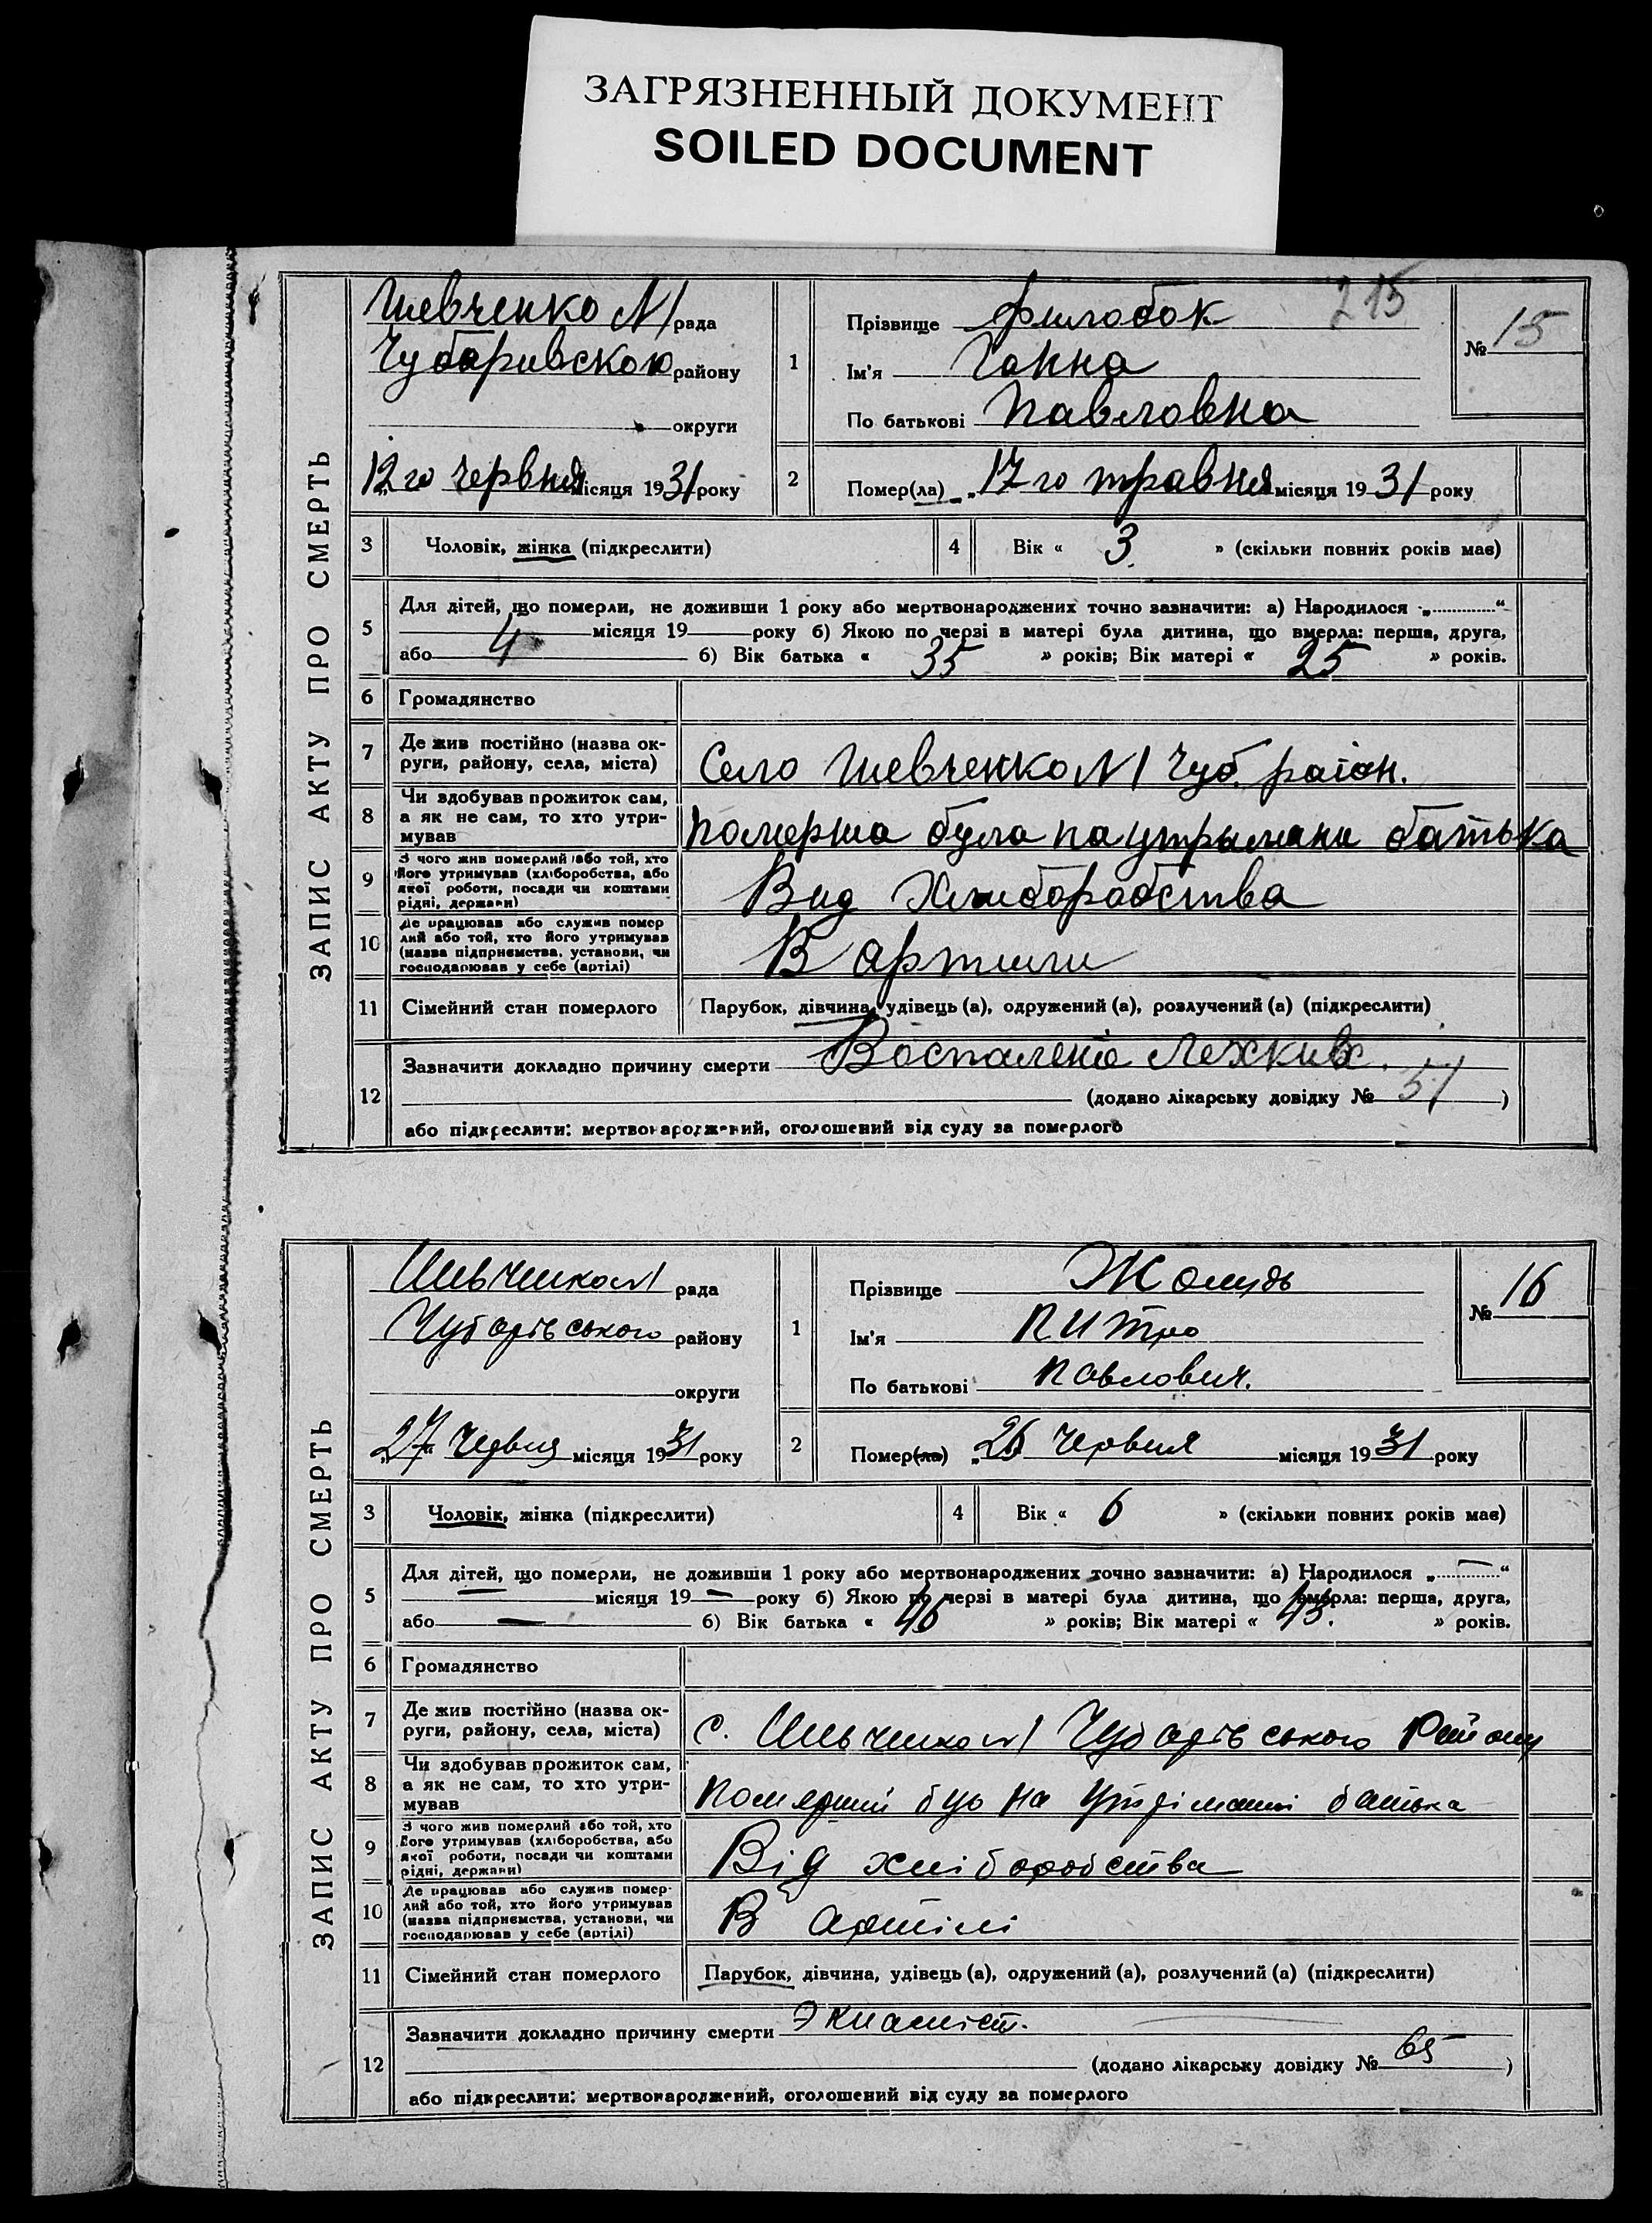 ЗАГРЯЗНЕННЫЙ ДОКУМЕНТ
SOILED DOCUMENT
ЗАПИС АКТУ ПРО СМЕРТЬ
Шевченко N1 рада
Чубаривского району
округи
12го червня місяця 1931 року
215
1 Прізвище Филобок
Ім'я Ганна
По батькові Павловна
№ 15
2 Помер(ла) „17го травня місяця 1931 року
3 Чоловік, жінка (підкреслити)
4 Вік « 3 » (скільки повних років має)
5 Для дітей, що померли, не доживши 1 року або мертвонароджених точно зазначити: а) Народилося „ “
місяця 19 року б) Якою по черзі в матері була дитина, що вмерла: перша, друга,
або 4 б) Вік батька « 35 » років; Вік матері « 25 » років.
6 Громадянство
7 Де жив постійно (назва ок-
руги, району, села, міста) Село Шевченко N1 Чуб. раіон.
8 Чи здобував прожиток сам,
а як не сам, то хто утри-
мував Померша була на утрымани батька
9 З чого жив померлий або той, хто
його утримував (хліборобства, або
якої роботи, посади чи коштами
рідні, держави) Вид Хлиборобства
10 Де працював або служив помер
лий або той, хто його утримував
(назва підприємства, установи, чи
господарював у себе (артілі) В артили
11 Сімейний стан померлого Парубок, дівчина, удівець (а), одружений (а), розлучений (а) (підкреслити)
12 Зазначити докладно причину смерти Воспаленіе Лехких.
(додано лікарську довідку № 51 )
або підкреслити: мертвонароджений, оголошений від суду за померлого
ЗАПИС АКТУ ПРО СМЕРТЬ
Шивченко N1 рада
Чубарівського району
округи
„27“ Червня місяця 1931 року
1 Прізвище Жолудь
Ім'я Питро
По батькові Павлович.
№ 16
2 Помер(ла) „26 Червня місяця 1931 року
3 Чоловік, жінка (підкреслити)
4 Вік « 6 » (скільки повних років має)
5 Для дітей, що померли, не доживши 1 року або мертвонароджених точно зазначити: а) Народилося „—“
— місяця 19 — року б) Якою по черзі в матері була дитина, що вмерла: перша, друга,
або — б) Вік батька « 46 » років; Вік матері « 43. » років.
6 Громадянство
7 Де жив постійно (назва ок-
руги, району, села, міста) с. Шивченко N1 Чубарівського Району
8 Чи здобував прожиток сам,
а як не сам, то хто утри-
мував Помярший був на утріманні батька
9 З чого жив померлий або той, хто
його утримував (хліборобства, або
якої роботи, посади чи коштами
рідні, держави) Від хліборобства
10 Де працював або служив помер-
лий або той, хто його утримував
(назва підприємства, установи, чи
господарював у себе (артілі) В артілі
11 Сімейний стан померлого Парубок, дівчина, удівець (а), одружений (а), розлучений (а) (підкреслити)
12 Зазначити докладно причину смерти
(додано лікарську довідку № 65 )
або підкреслити: мертвонароджений, оголошений від суду за померлого